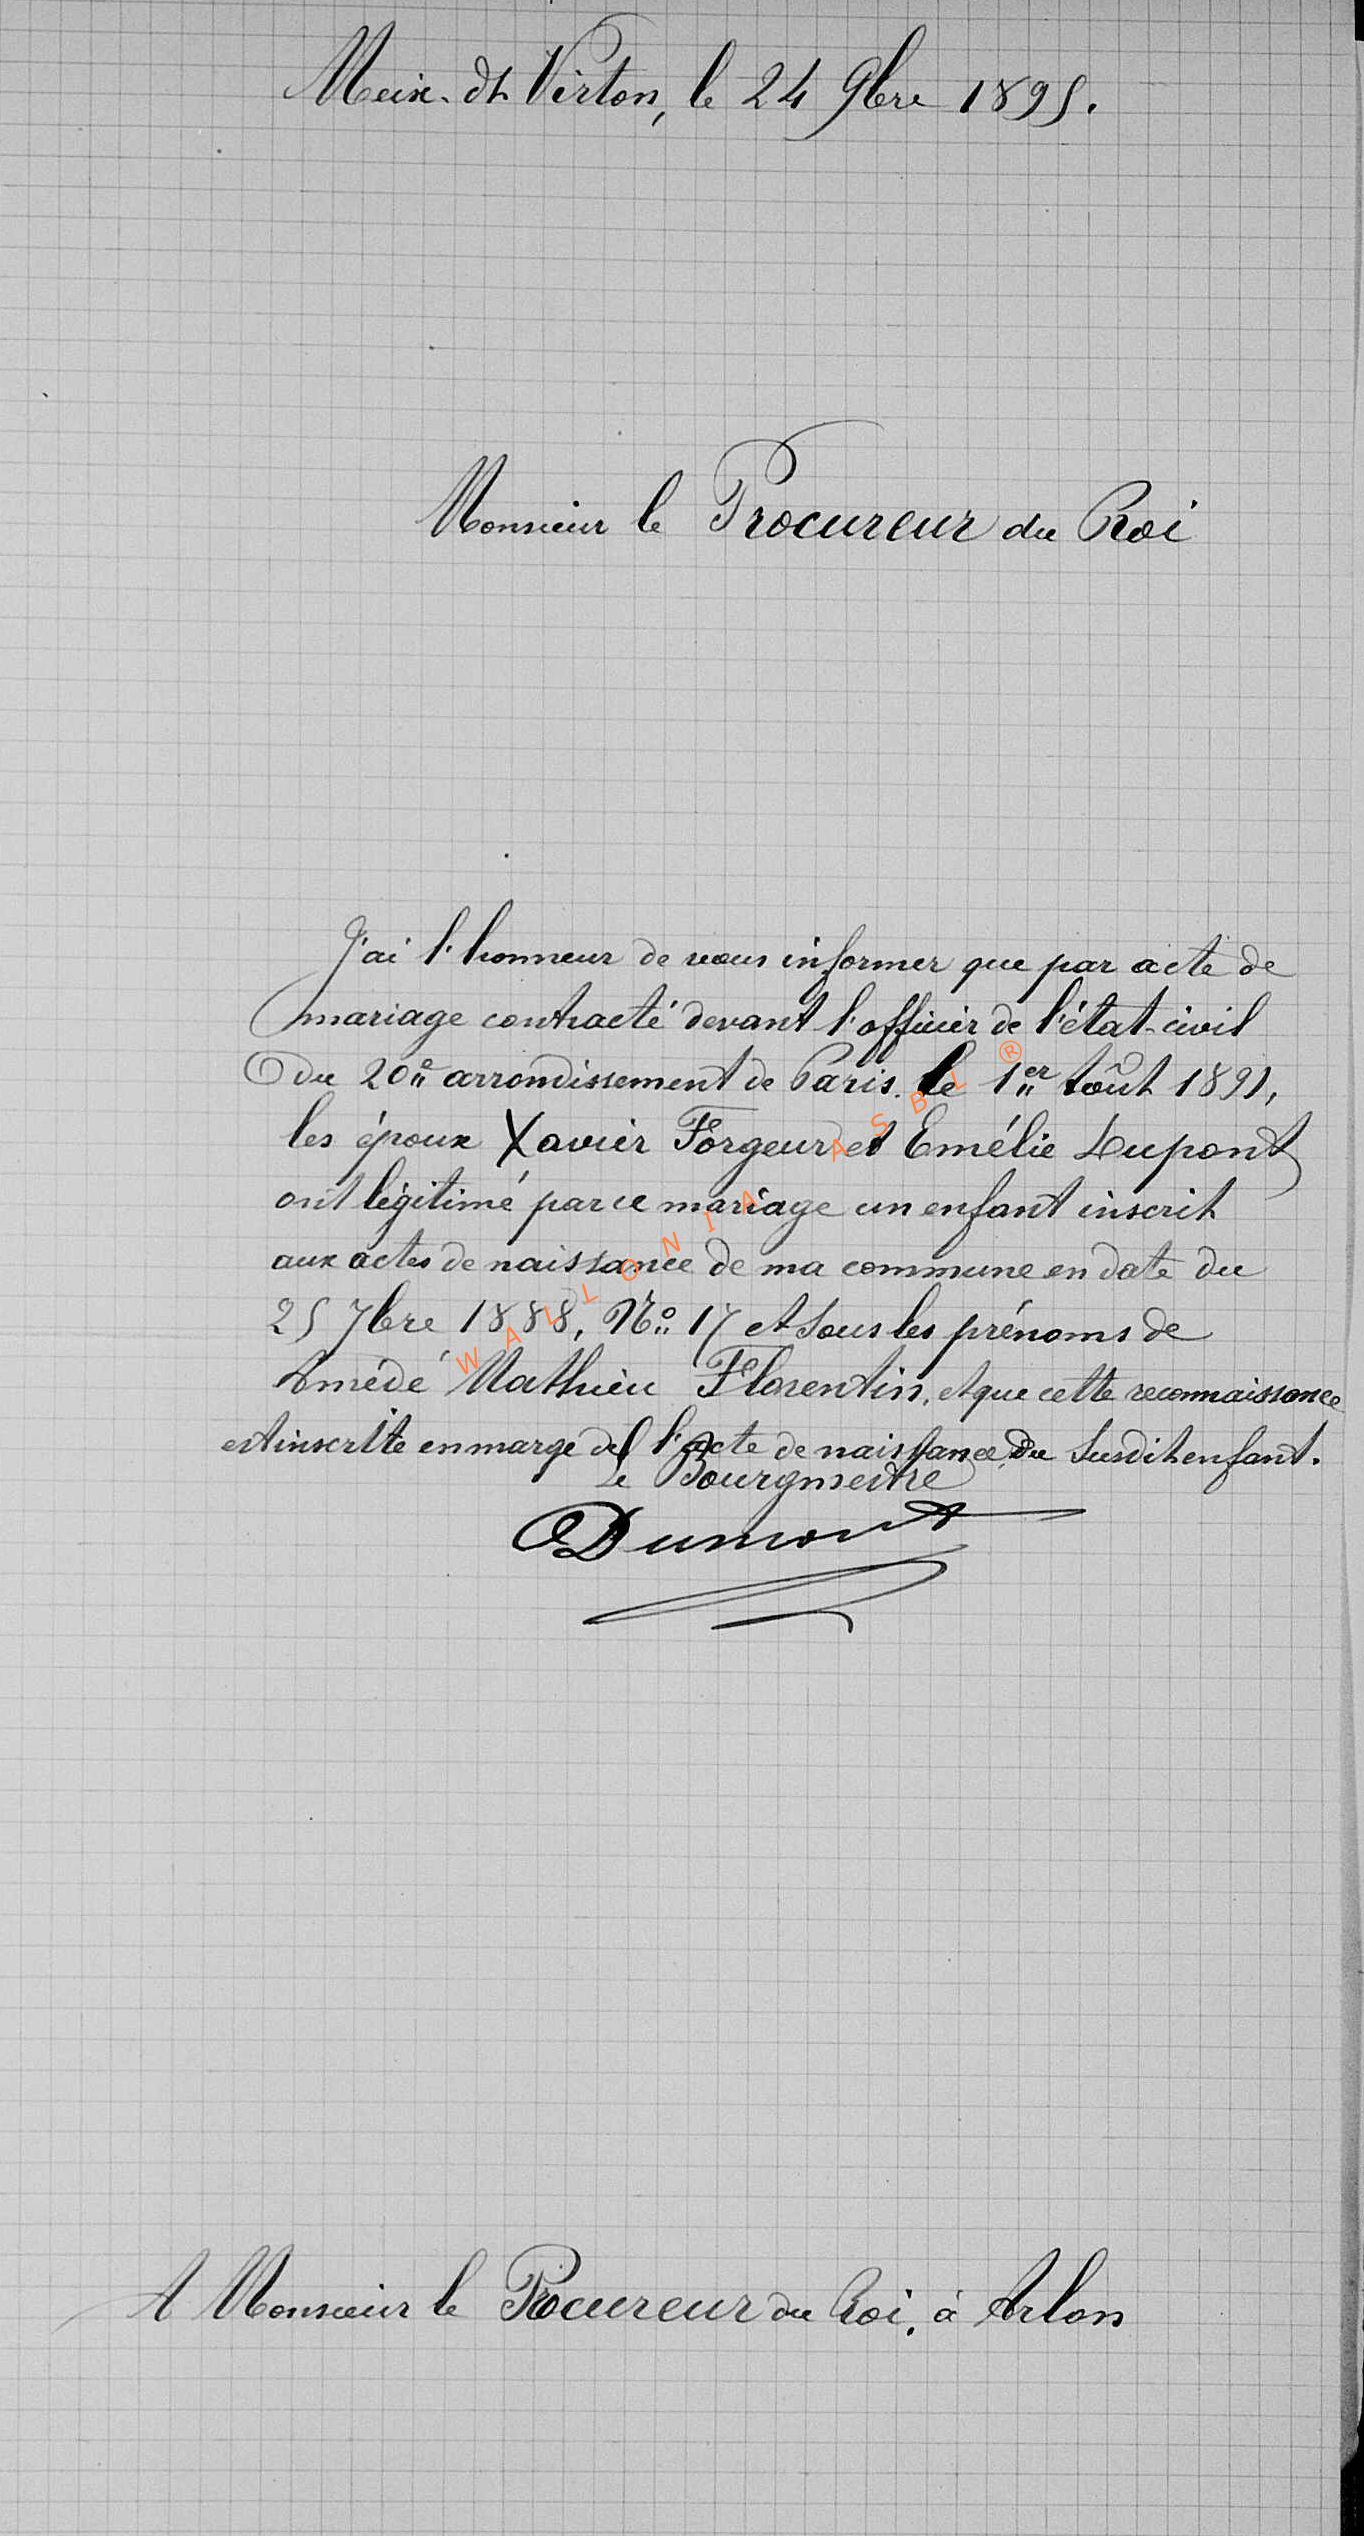 Meix-dt Virton, le 24 9bre 1895.
Monsieur le Procureur du Roi
J'ai l'honneur de vous informer que par acte de
mariage contracté devant l'officier de l'état-civil
du 20e arrondissement de Paris. le 1er Août 1891,
les époux Xavier Forgeur et Emélie Dupont
ont légitimé par ce mariage un enfant inscrit
aux actes de naissance de ma commune en date du
25 7bre 1888, No 17 et sous les prénoms de
Amédé Mathieu Florentin, et que cette reconnaissance
est inscrite en marge de l'acte de naissance du susdit enfant.
Le Bourgmestre
Dumont
A Monsieur le Procureur du Roi, à Arlon
WALLONIA ASBL ®